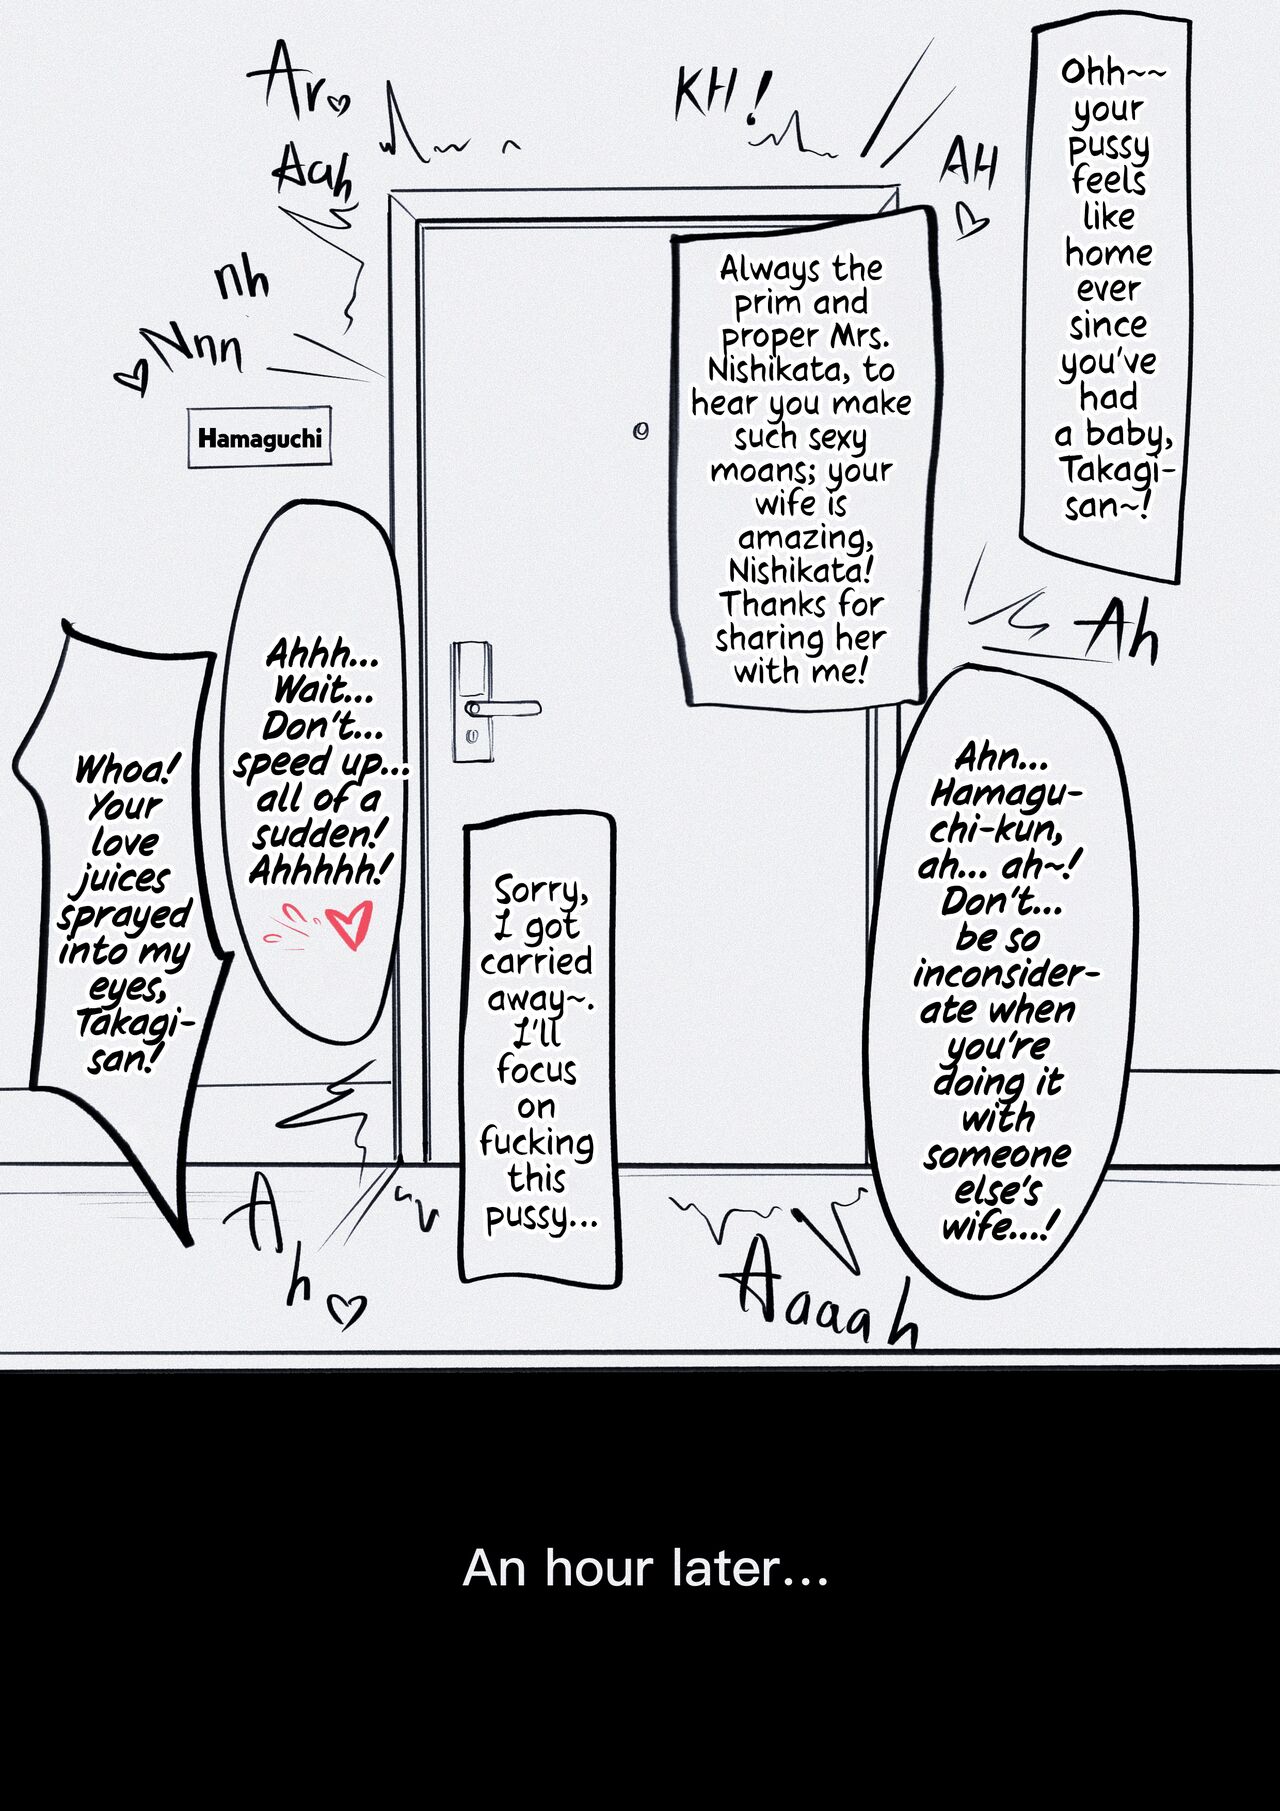 Ohh~~
your
pussy
feels
like
home
ever
since
you've
had
a baby,
Takagi-
san~!
KH!
AH
Ar
Aah
nh
Nnn
Always the
prim and
proper Mrs.
Nishikata, to
hear you make
such sexy
moans; your
wife is
amazing,
Nishikata!
Thanks for
sharing her
with me!
Hamaguchi
Ah
Ahn...
Hamagu-
chi-kun,
ah... ah~!
Don't...
be so
inconsider-
ate when
you're
doing it
with
someone
else's
wife...!
Sorry,
I got
carried
away~.
I'll
focus
on
fucking
this
pussy...
Ahhh...
Wait...
Don't...
speed up...
all of a
sudden!
Ahhhhh!
Whoa!
Your
love
juices
sprayed
into my
eyes,
Takagi-
san!
Ah
Aaaah
An hour later...